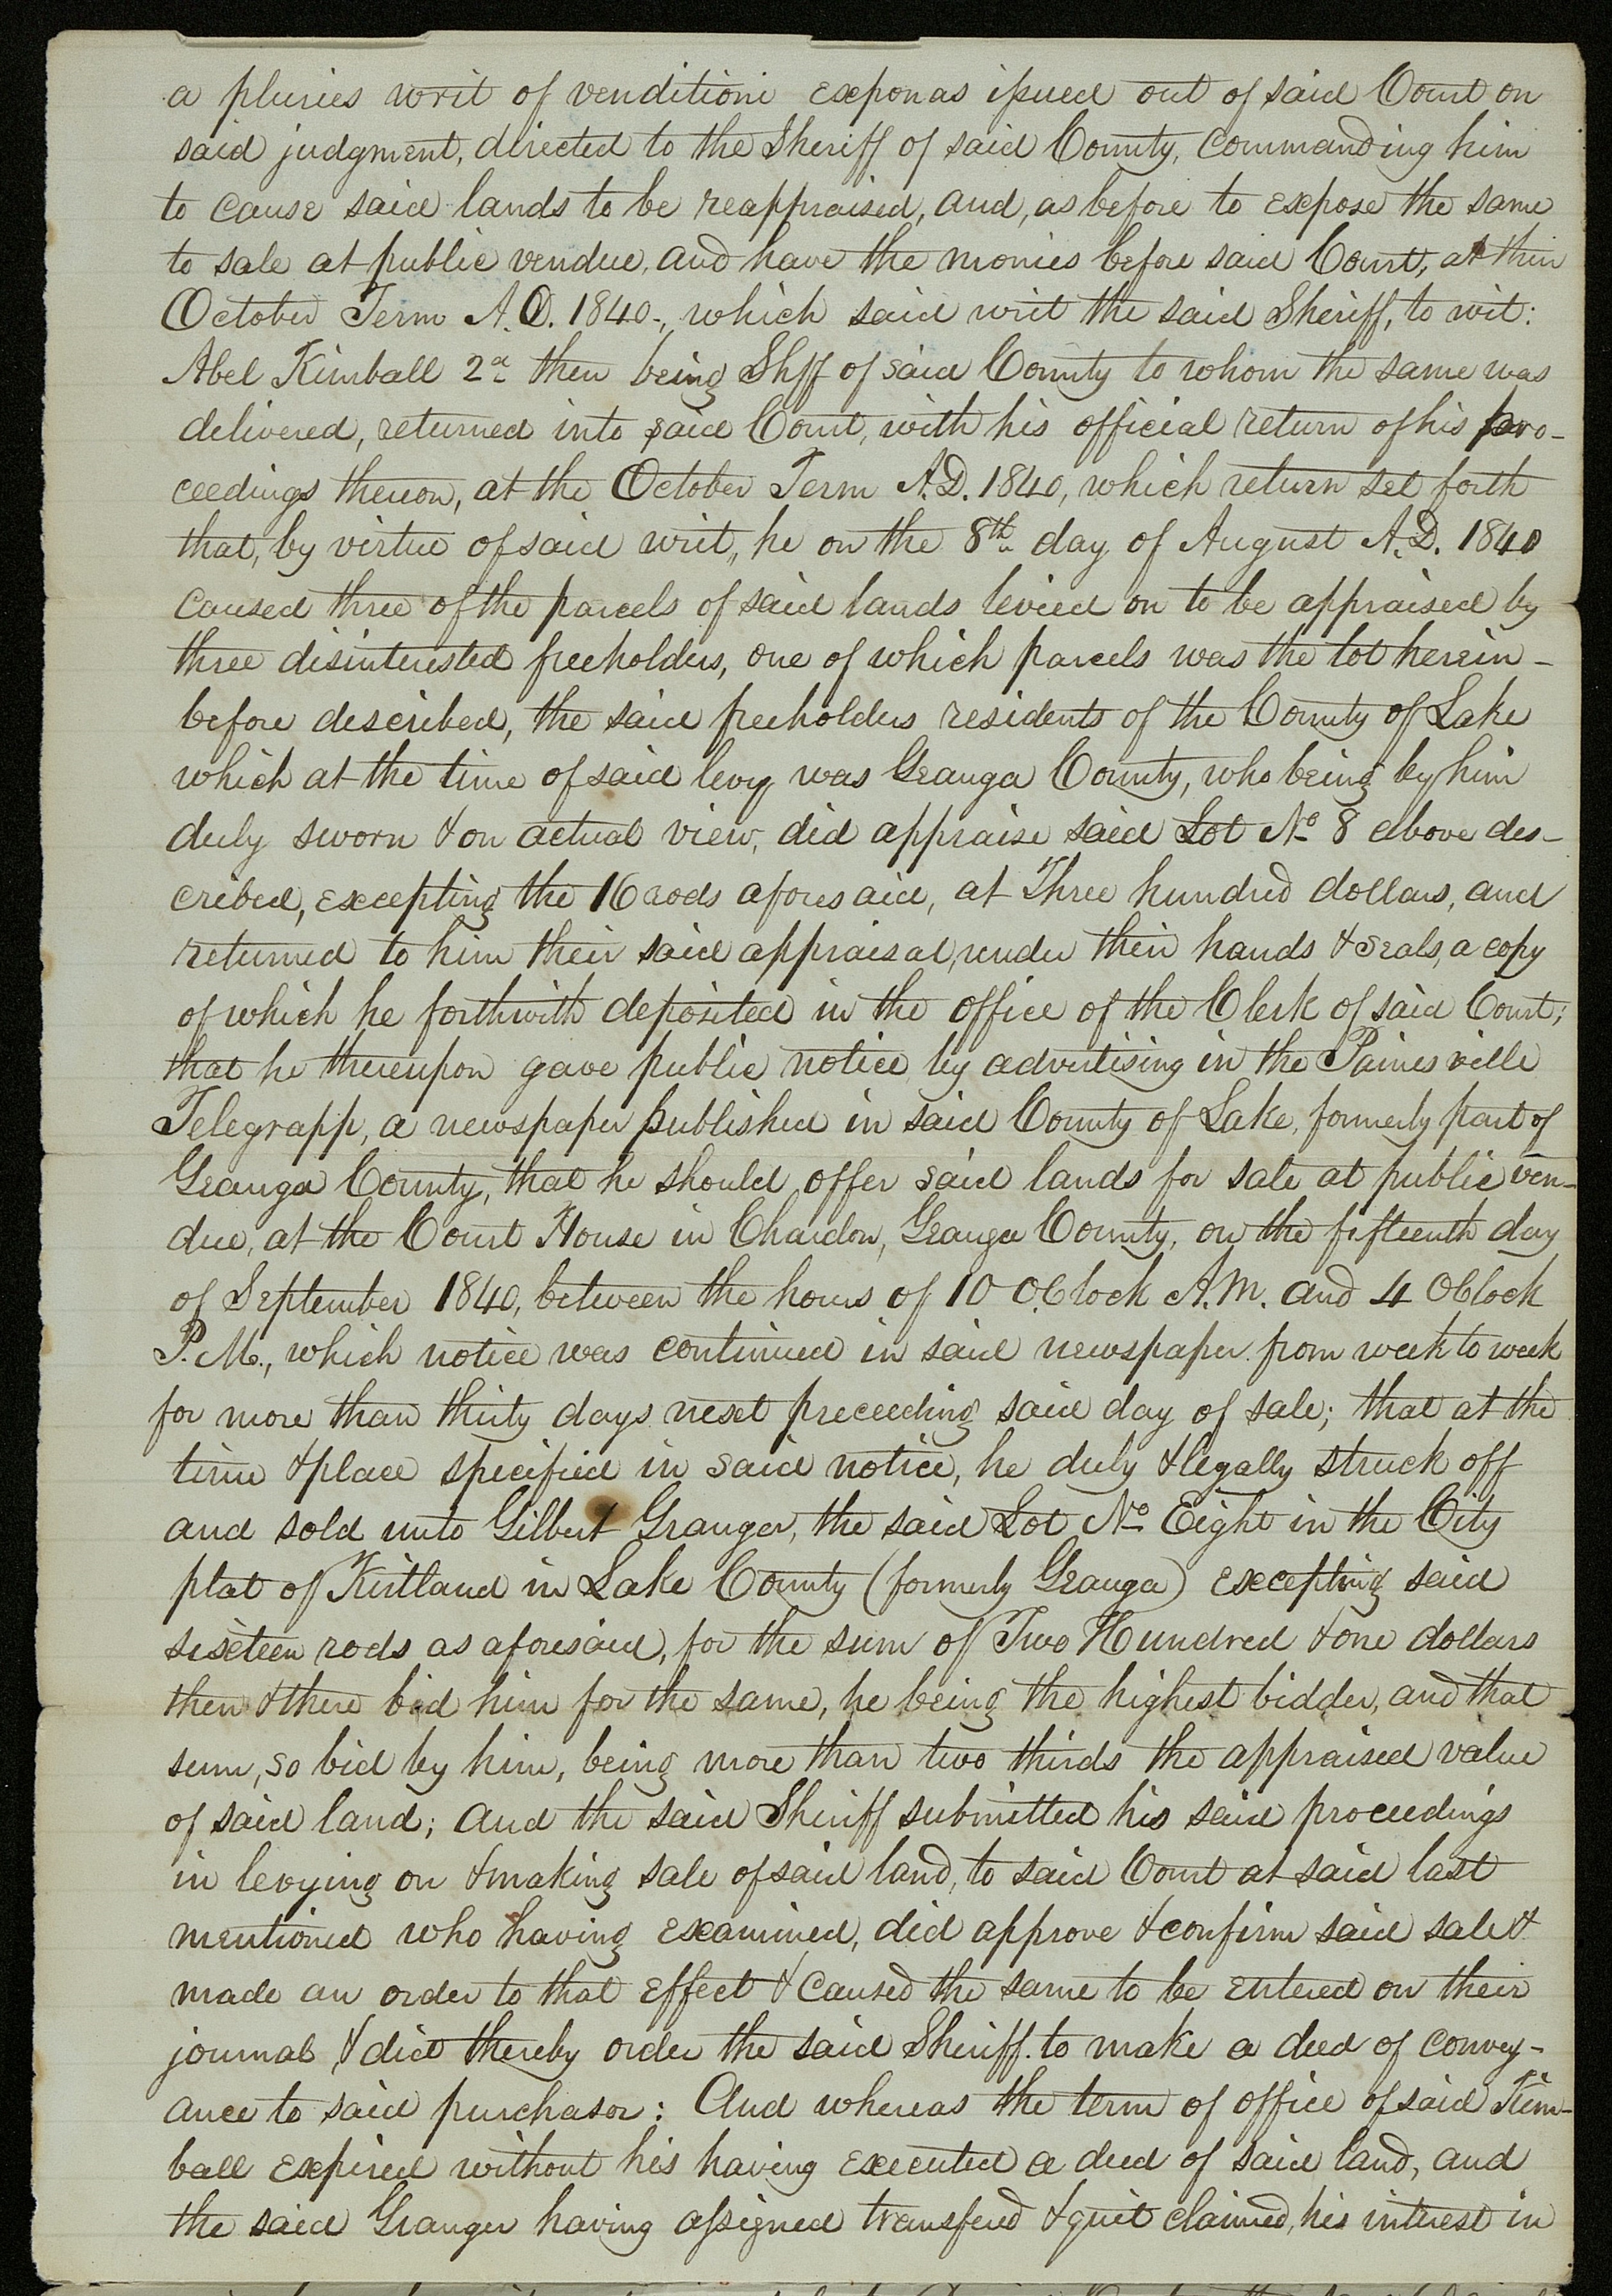 a pluries writ of venditioni exponas issued out of said Court on
said judgment, directed to the Sheriff of said County, commanding him
to cause said lands to be reappraised, and, as before to expose the same
to sale at public vendue, and have the monies before said Court, at their
October Term A.D. 1840-, which said writ the said Sheriff, to wit:
Abel Kimball 2d then being Shff of said County to whom the same was
delivered, returned into said Court, with his official return of his pro-
ceedings thereon, at the October Term A.D. 1840, which return set forth
that, by virtue of said writ, he on the 8th day of August A.D. 1840
caused three of the parcels of said lands levied on to be appraised by
three disinterested freeholders, one of which parcels was the lot herein-
before described, the said freeholders residents of the County of Lake
which at the time of said levy was Geauga County, who being by him
duly sworn & on actual view, did appraise said Lot No 8 above des-
cribed, excepting the 16 rods aforesaid, at Three hundred dollars, and
returned to him their said appraisal, under their hands & seals, a copy
of which he forthwith deposited in the office of the Clerk of said Court;
that he thereupon gave public notice by advertising in the Painesville
Telegrapp, a newspaper published in said County of Lake, formerly part of
Geauga County, that he should offer said lands for sale at public ven-
due, at the Court House in Chardon, Geauga County, on the fifteenth day
of September 1840, between the hours of 10 O.Clock A.M. and 4 OClock
P.M., which notice was continued in said newspaper from week to week
for more than thirty days next preceeding said day of sale; that at the
time & place specified in said notice, he duly & legally struck off
and sold unto Gilbert Granger, the said Lot No Eight in the City
plat of Kirtland in Lake County (formerly Geauga) excepting said
sixteen rods as aforesaid, for the sum of Two Hundred & one dollars
then & there bid him for the same, he being the highest bidder, and that
sum, so bid by him, being more than two thirds the appraised value
of said land; and the said Sheriff submitted his said proceedings
in levying on & making sale of said land, to said Court at said last
mentioned who having examined, did approve & confirm said sale &
made an order to that effect & caused the same to be entered on their
journal, & did thereby order the said Sheriff to make a deed of convey-
ance to said purchasor: And whereas the term of office of said Kim-
ball expired without his having executed a deed of said land, and
the said Granger having assigned transfered & quit claimed, his interest in